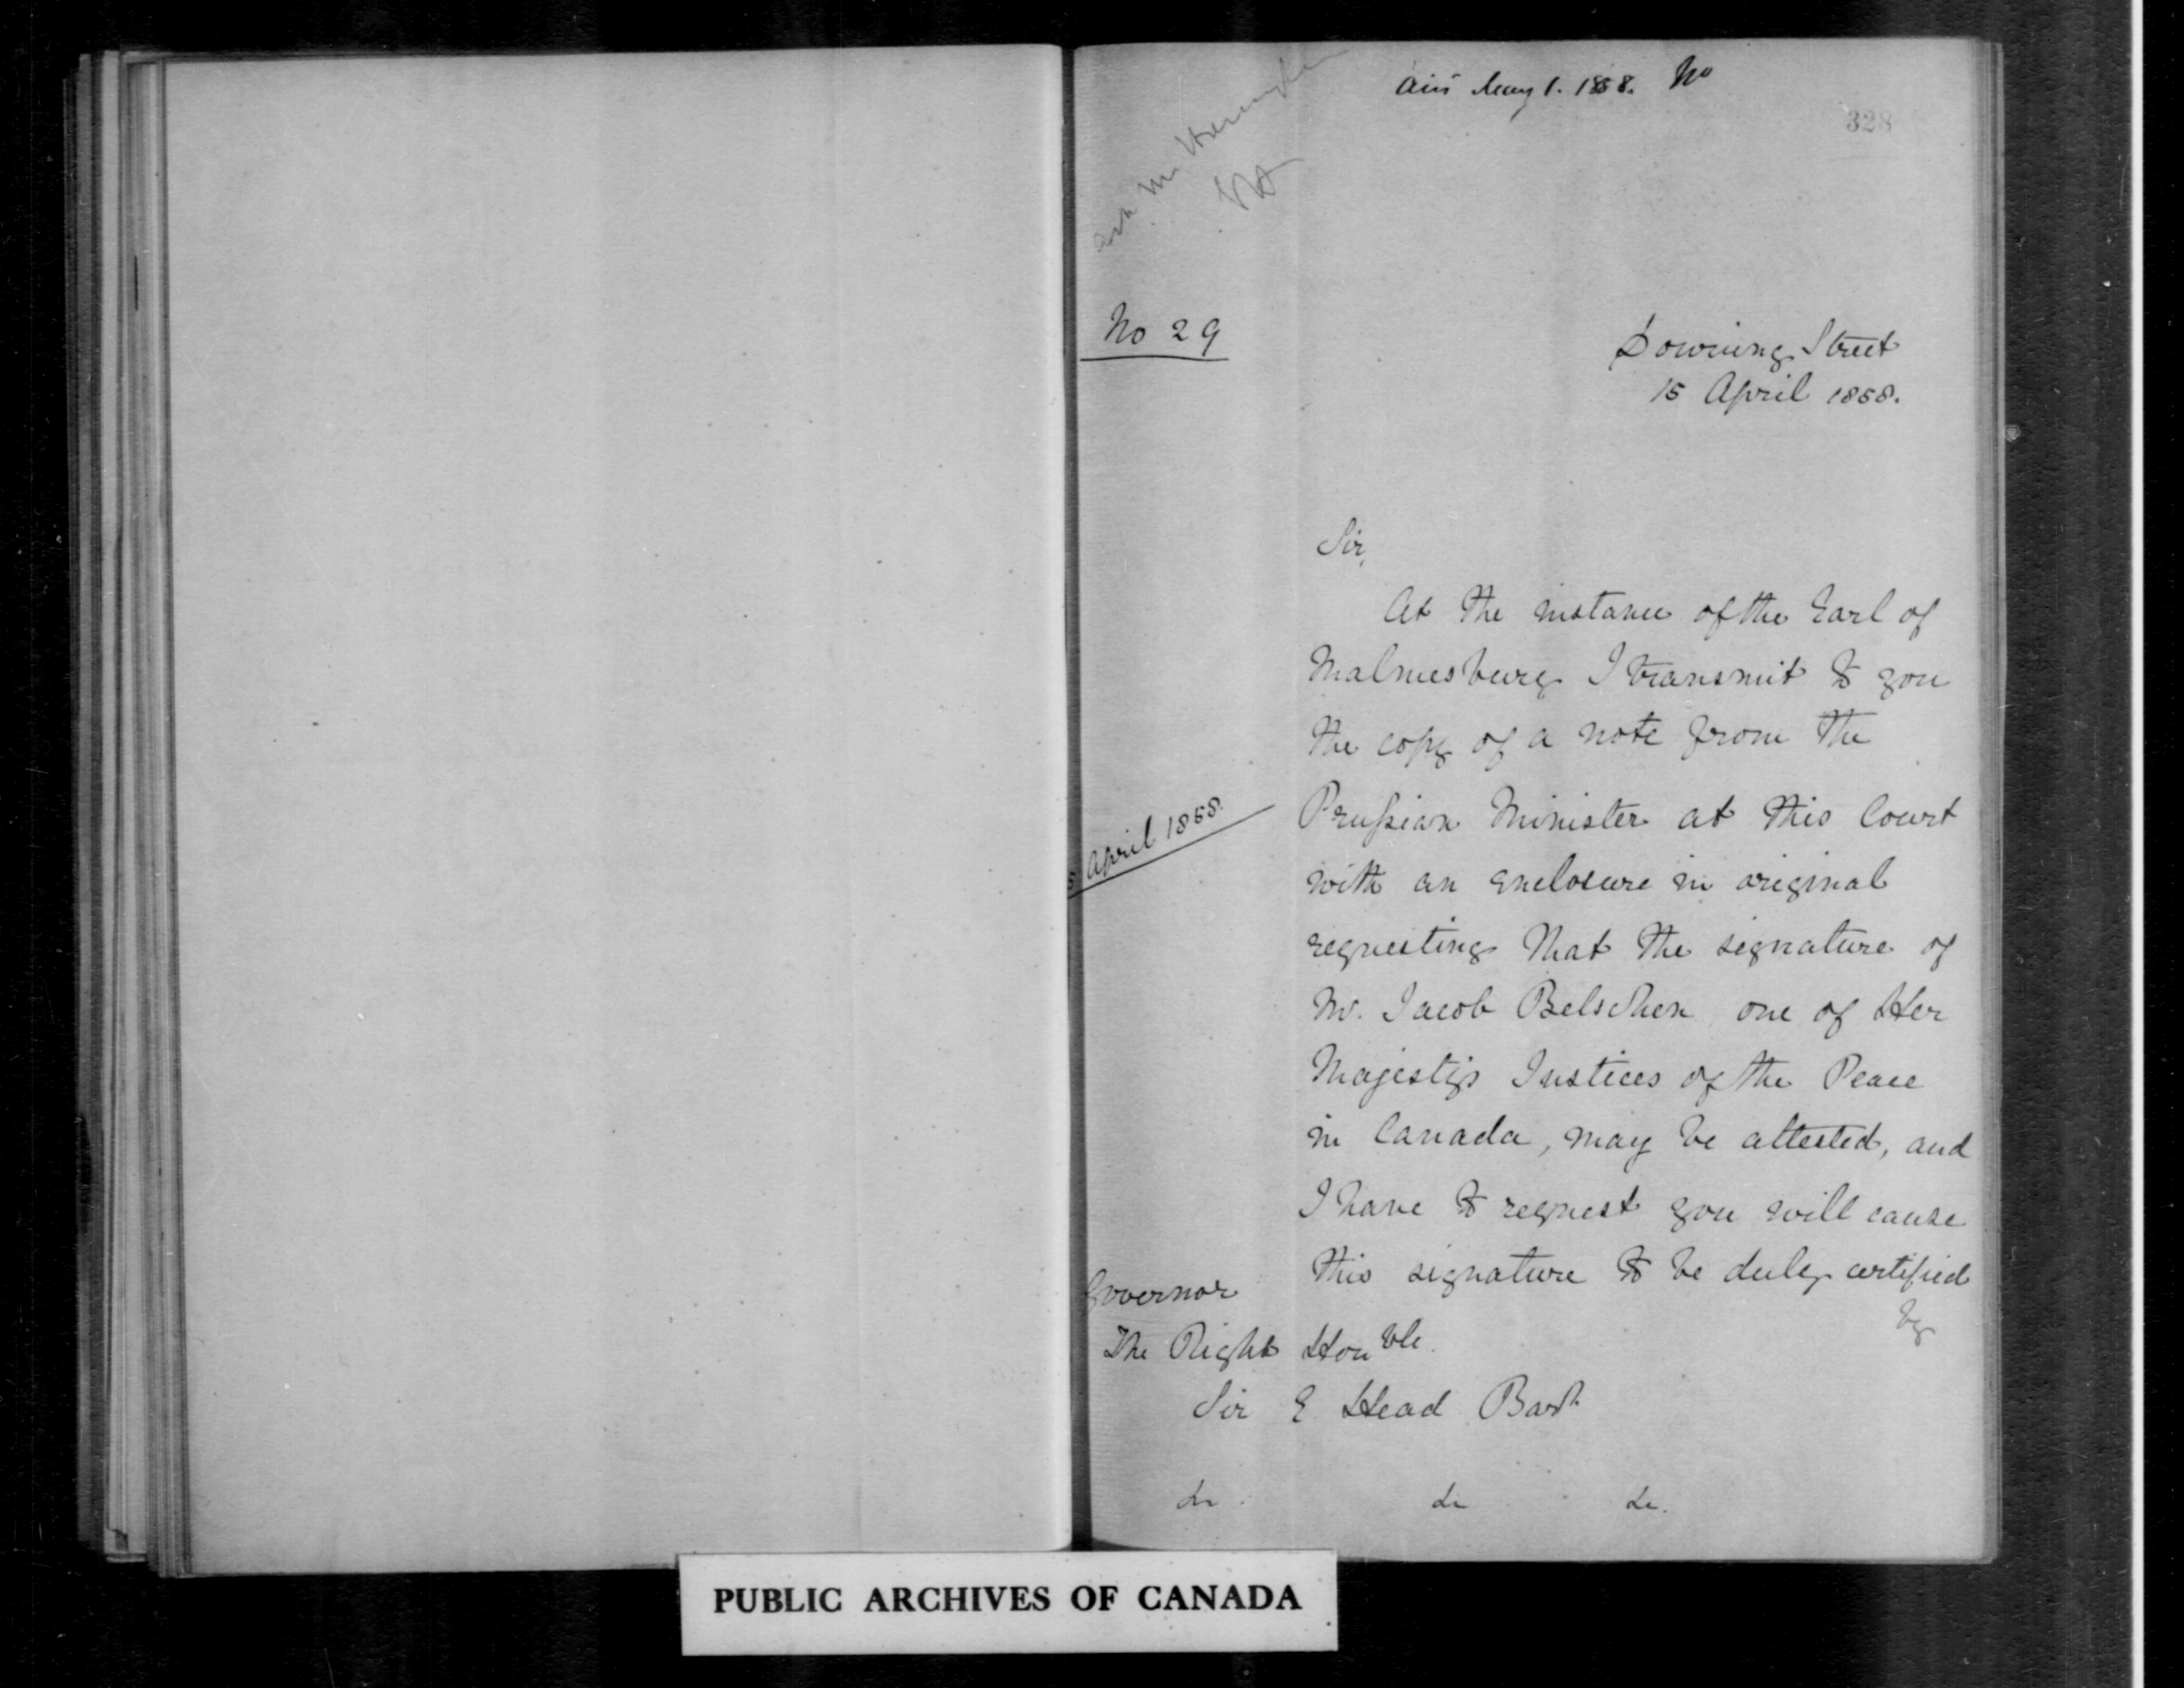 May 1. 1858. No
328
ask Mr
No 29
Downing Street
15 April 1858.
Sir,
At the instance of the Earl of
Malmesbury I transmit to you
the copy of a note from the
April 1858.
Prussian Minister at this Court
with an enclosure in original
requesting that the signature of
Mr. Jacob Belschen one of Her
Majesty's Justices of the Peace
in Canada, may be attested, and
I have to request you will cause
this signature to be duly certified
by
Governor
The Right Honble.
Sir E Head Bart
&c. &c &c.
PUBLIC ARCHIVES OF CANADA